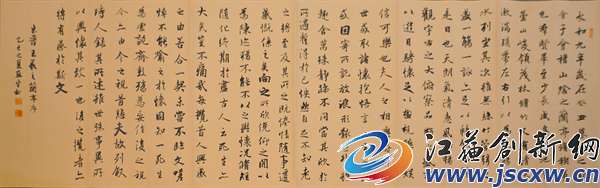 永和九年歲在癸丑
會于會稽山陰之蘭亭脩
也羣賢畢至少長咸
崇山峻領茂林脩竹
激湍暎帶左右引以
水列坐其次雖無絲竹管
盛一觴一詠亦足以
是日也天朗氣清惠風
觀宇宙之大俯察品
以遊目騁懷足以極視聽
信可樂也夫人之相與
或取諸懷抱悟言
或因寄所託放浪形骸
趣舍萬殊靜躁不同當其欣於
所遇暫得於己快然自足不知老
之將至及其所之既惓情隨事遷
感慨係之矣向之所欣俛仰之間以
為陳迹猶不能不以之興懷況脩短
隨化終期於盡古人云死生亦
大矣豈不痛哉每攬昔人興感
之由若合一契未嘗不臨文嗟
悼不能喻之於懷固知一死生
為虛誕齊彭殤為妄作後之視
今亦由今之視昔悲夫故列敘
時人錄其所述雖世殊事異所
以興懷其致一也後之攬者亦
將有感於斯文
東晉王羲之蘭亭序
乙未之夏
江苏创新网
www.jscxw.cn